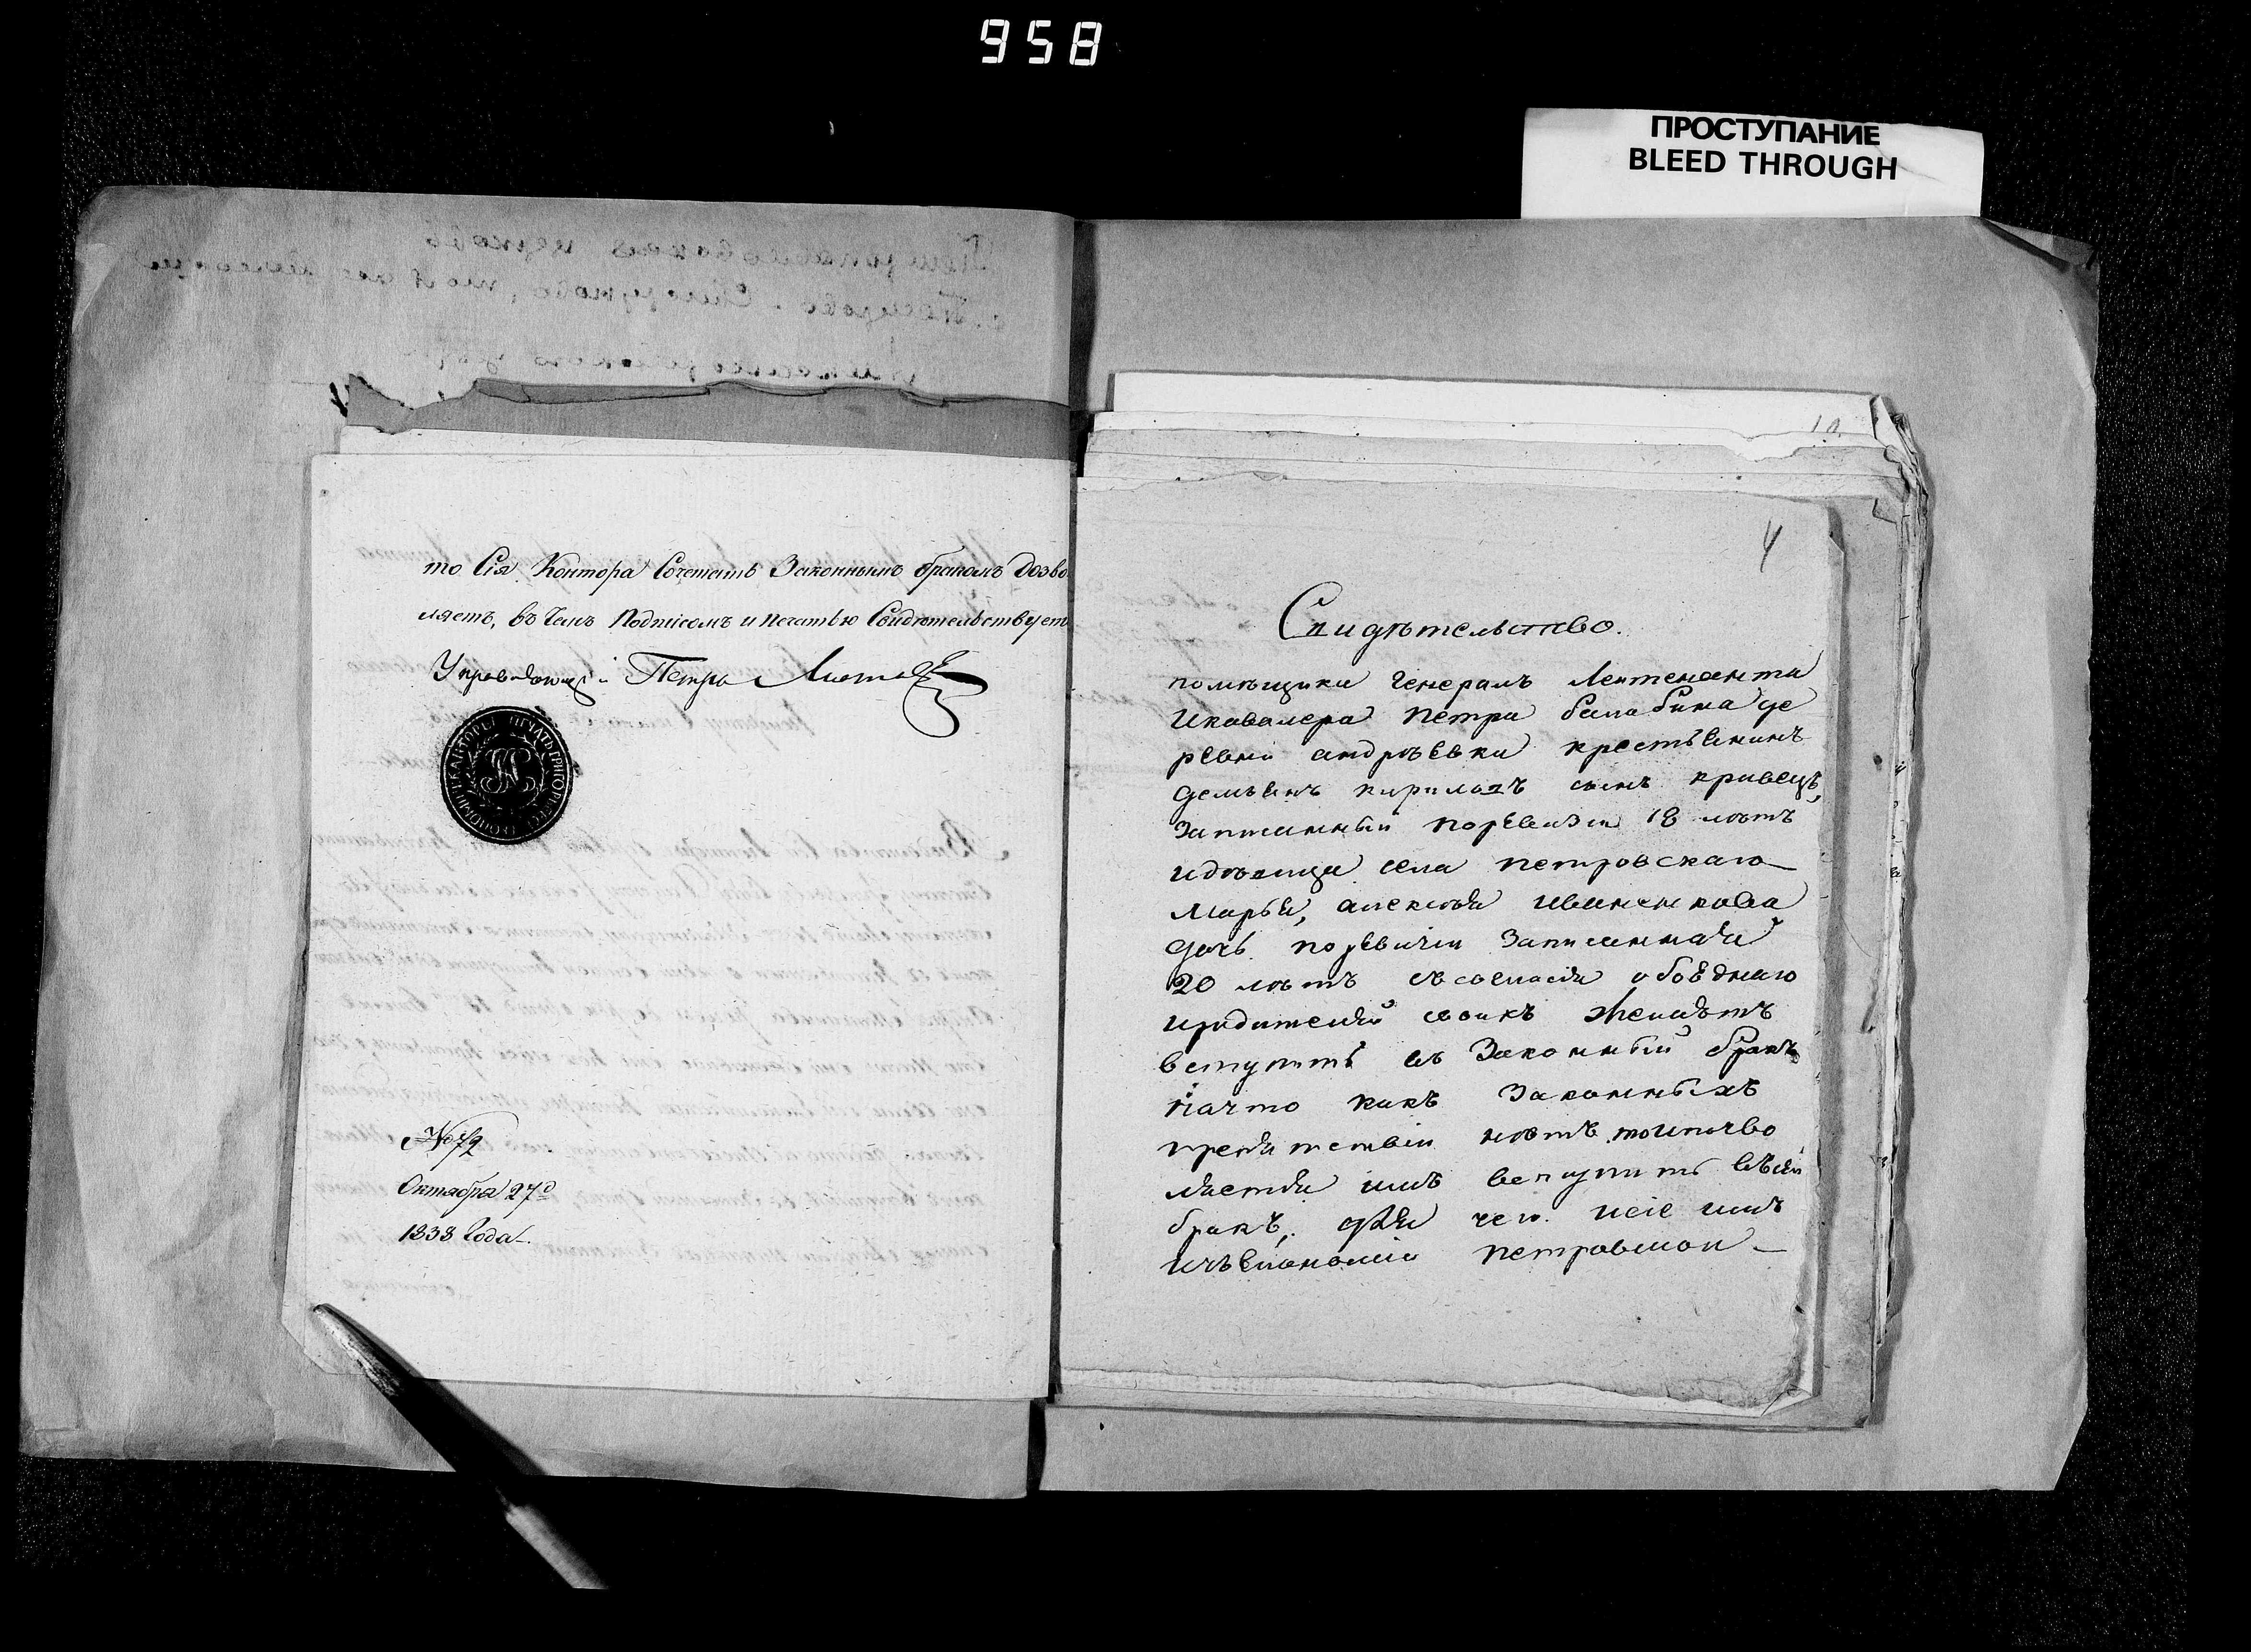 958
ПРОСТУПАНИЕ
BLEED THROUGH
то Сія Контора Сочетать Законнымъ бракомъ дозво
ляетъ, въ чемъ подписомъ и печатью Свидѣтельствуетъ
Управляющій Петръ
№ 72
Октября 27го
1838 Года.
10
4
Свидѣтельство.
помѣщика Генералъ Лентенанта
Икавалера Петра балабина де
ревни андрѣевки крестьянинъ
демьянъ кирилавъ сынъ кривецъ,
Записанный поревизіи 18 лѣтъ
идѣвица села петровскаго
Марья, алексѣя иваненкова
дочь поревизіи Записанная
20 лѣтъ съсогласія обоѣднаго
иродителей своихъ желаѣтъ
вступить въ Законный бракъ
начто какъ Законныхъ
препятствіи нѣтъ то
имъ вступить въсей
бракъ, для чего ісіе имъ
петровской